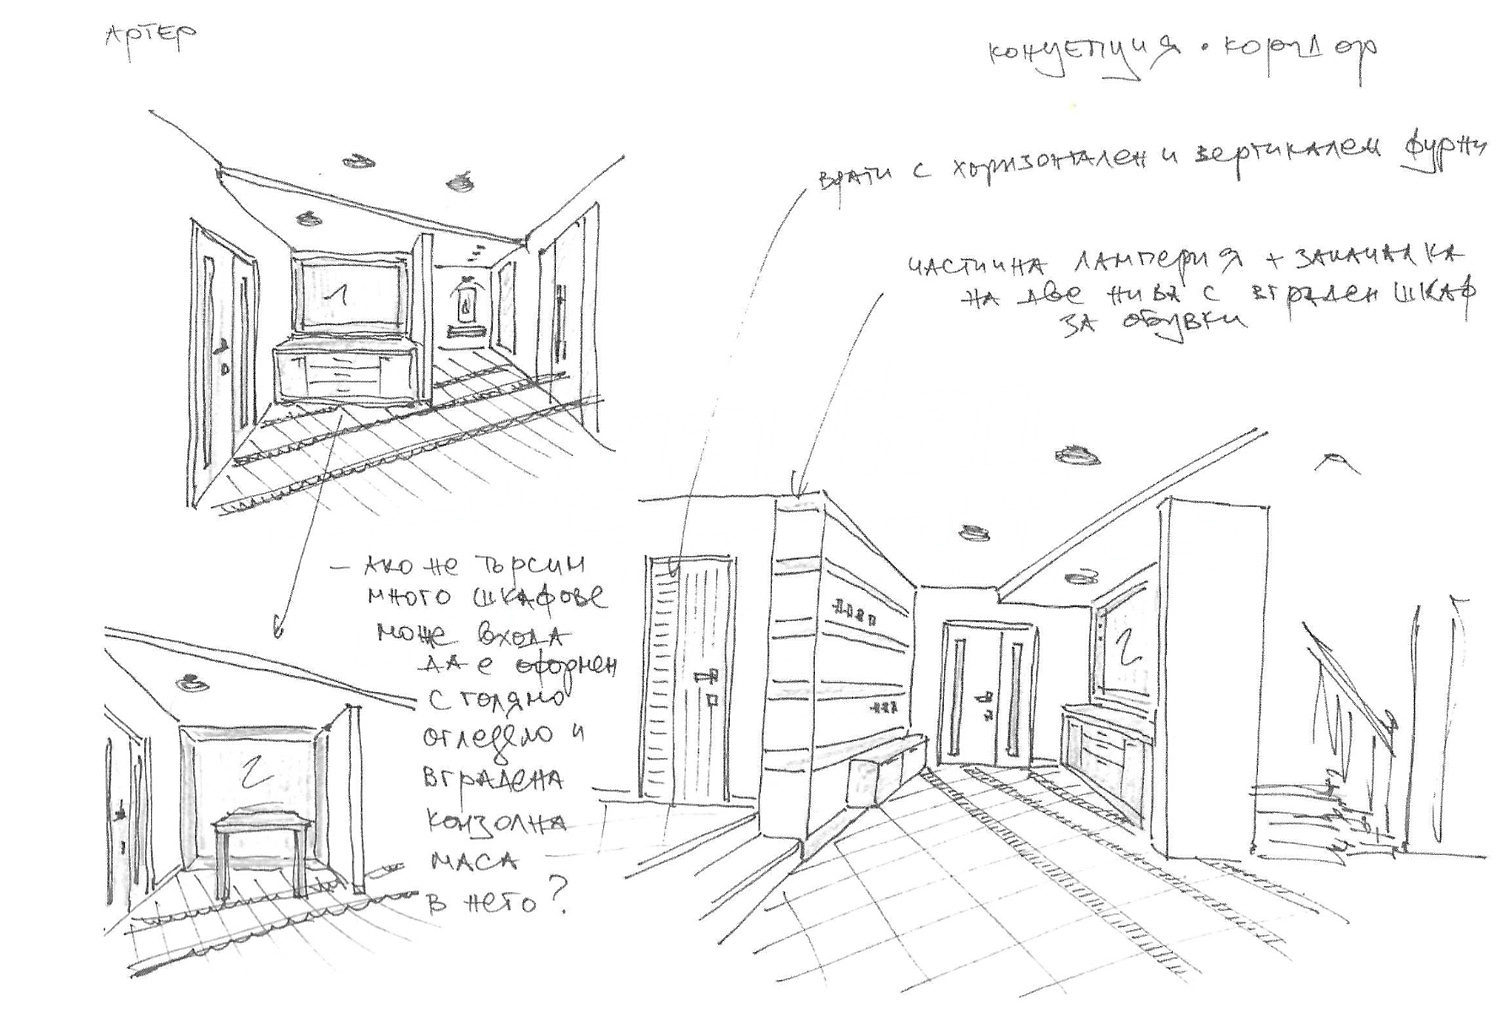 АРТЕР
КОНЦЕПЦИЯ • КОРИДОР
ВРАТИ С ХОРИЗОНТАЛЕН И ВЕРТИКАЛЕН ФУРНИ
ЧАСТИЧНА ЛАМПЕРИЯ + ЗАКАЧАЛКА
НА ДВЕ НИВА С ВГРАДЕН ШКАФ
ЗА ОБУВКИ
1
- АКО НЕ ТЪРСИМ
МНОГО ШКАФОВЕ
МОЖЕ ВХОДА
ДА Е ОФОРМЕН
С ГОЛЯМО
ОГЛЕДЕЛО И
ВГРАДЕНА
КОНЗОЛНА
МАСА
В НЕГО?
2
2